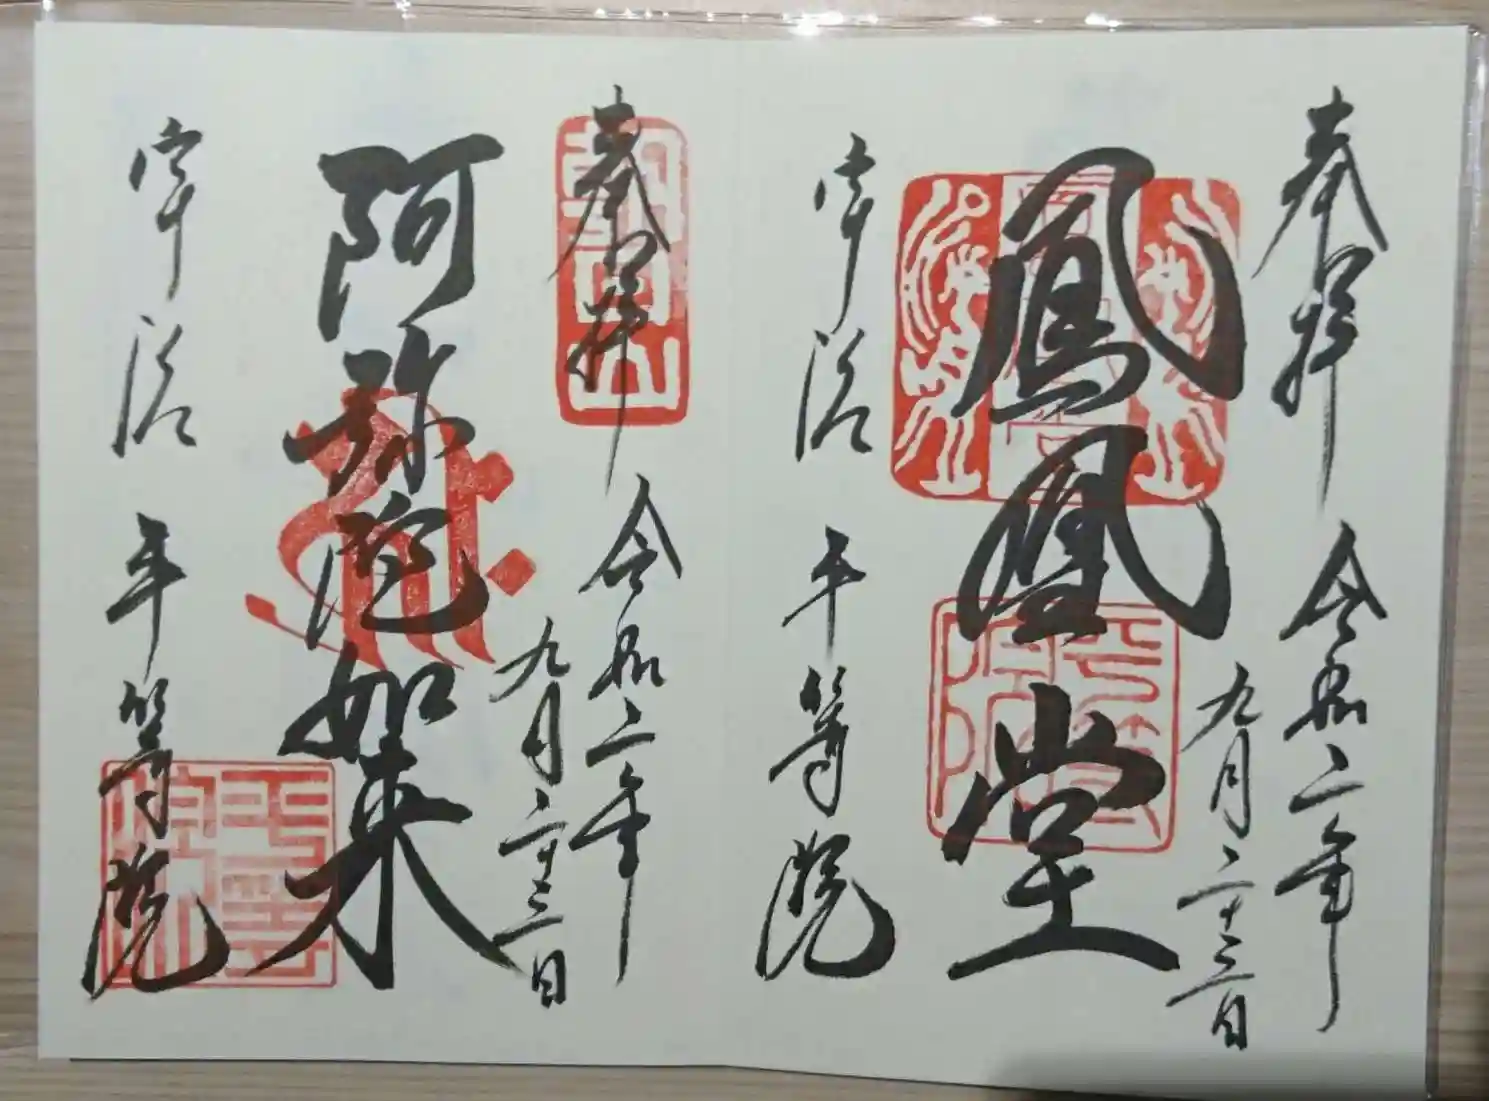 奉拝
令和二年
九月二十三日
鳳凰堂
宇治 平等院
奉拝
令和二年
九月二十三日
阿弥陀如来
宇治 平等院